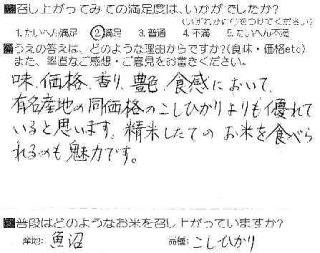 召し上がってみての満足度は、いかがでしたか?
(いずれかに○をつけてください)
1.たいへん満足 ②満足 3.普通 4.不満 5.たいへん不満
うえの答えは、どのような理由からですか?(食味・価格etc)
また、率直なご感想・ご意見をお書きください。
味、価格、香り、艶色、食感において、
有名産地の同価格のこしひかりよりも優れて
いると思います。精米したての お米を食べら
れるのも魅力です。
普段はどのようなお米を召し上がっていますか?
産地: 魚沼 品種: こしひかり